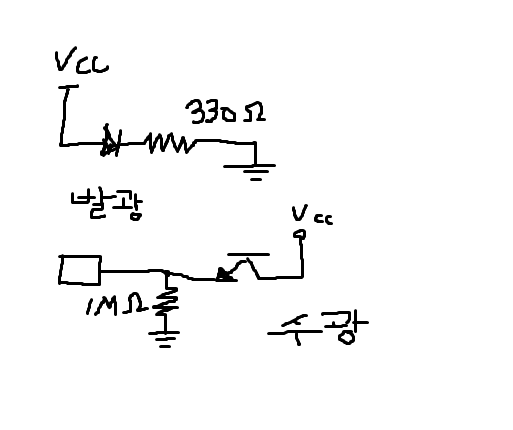 Vcc
330Ω
발광
Vcc
1MΩ
수광